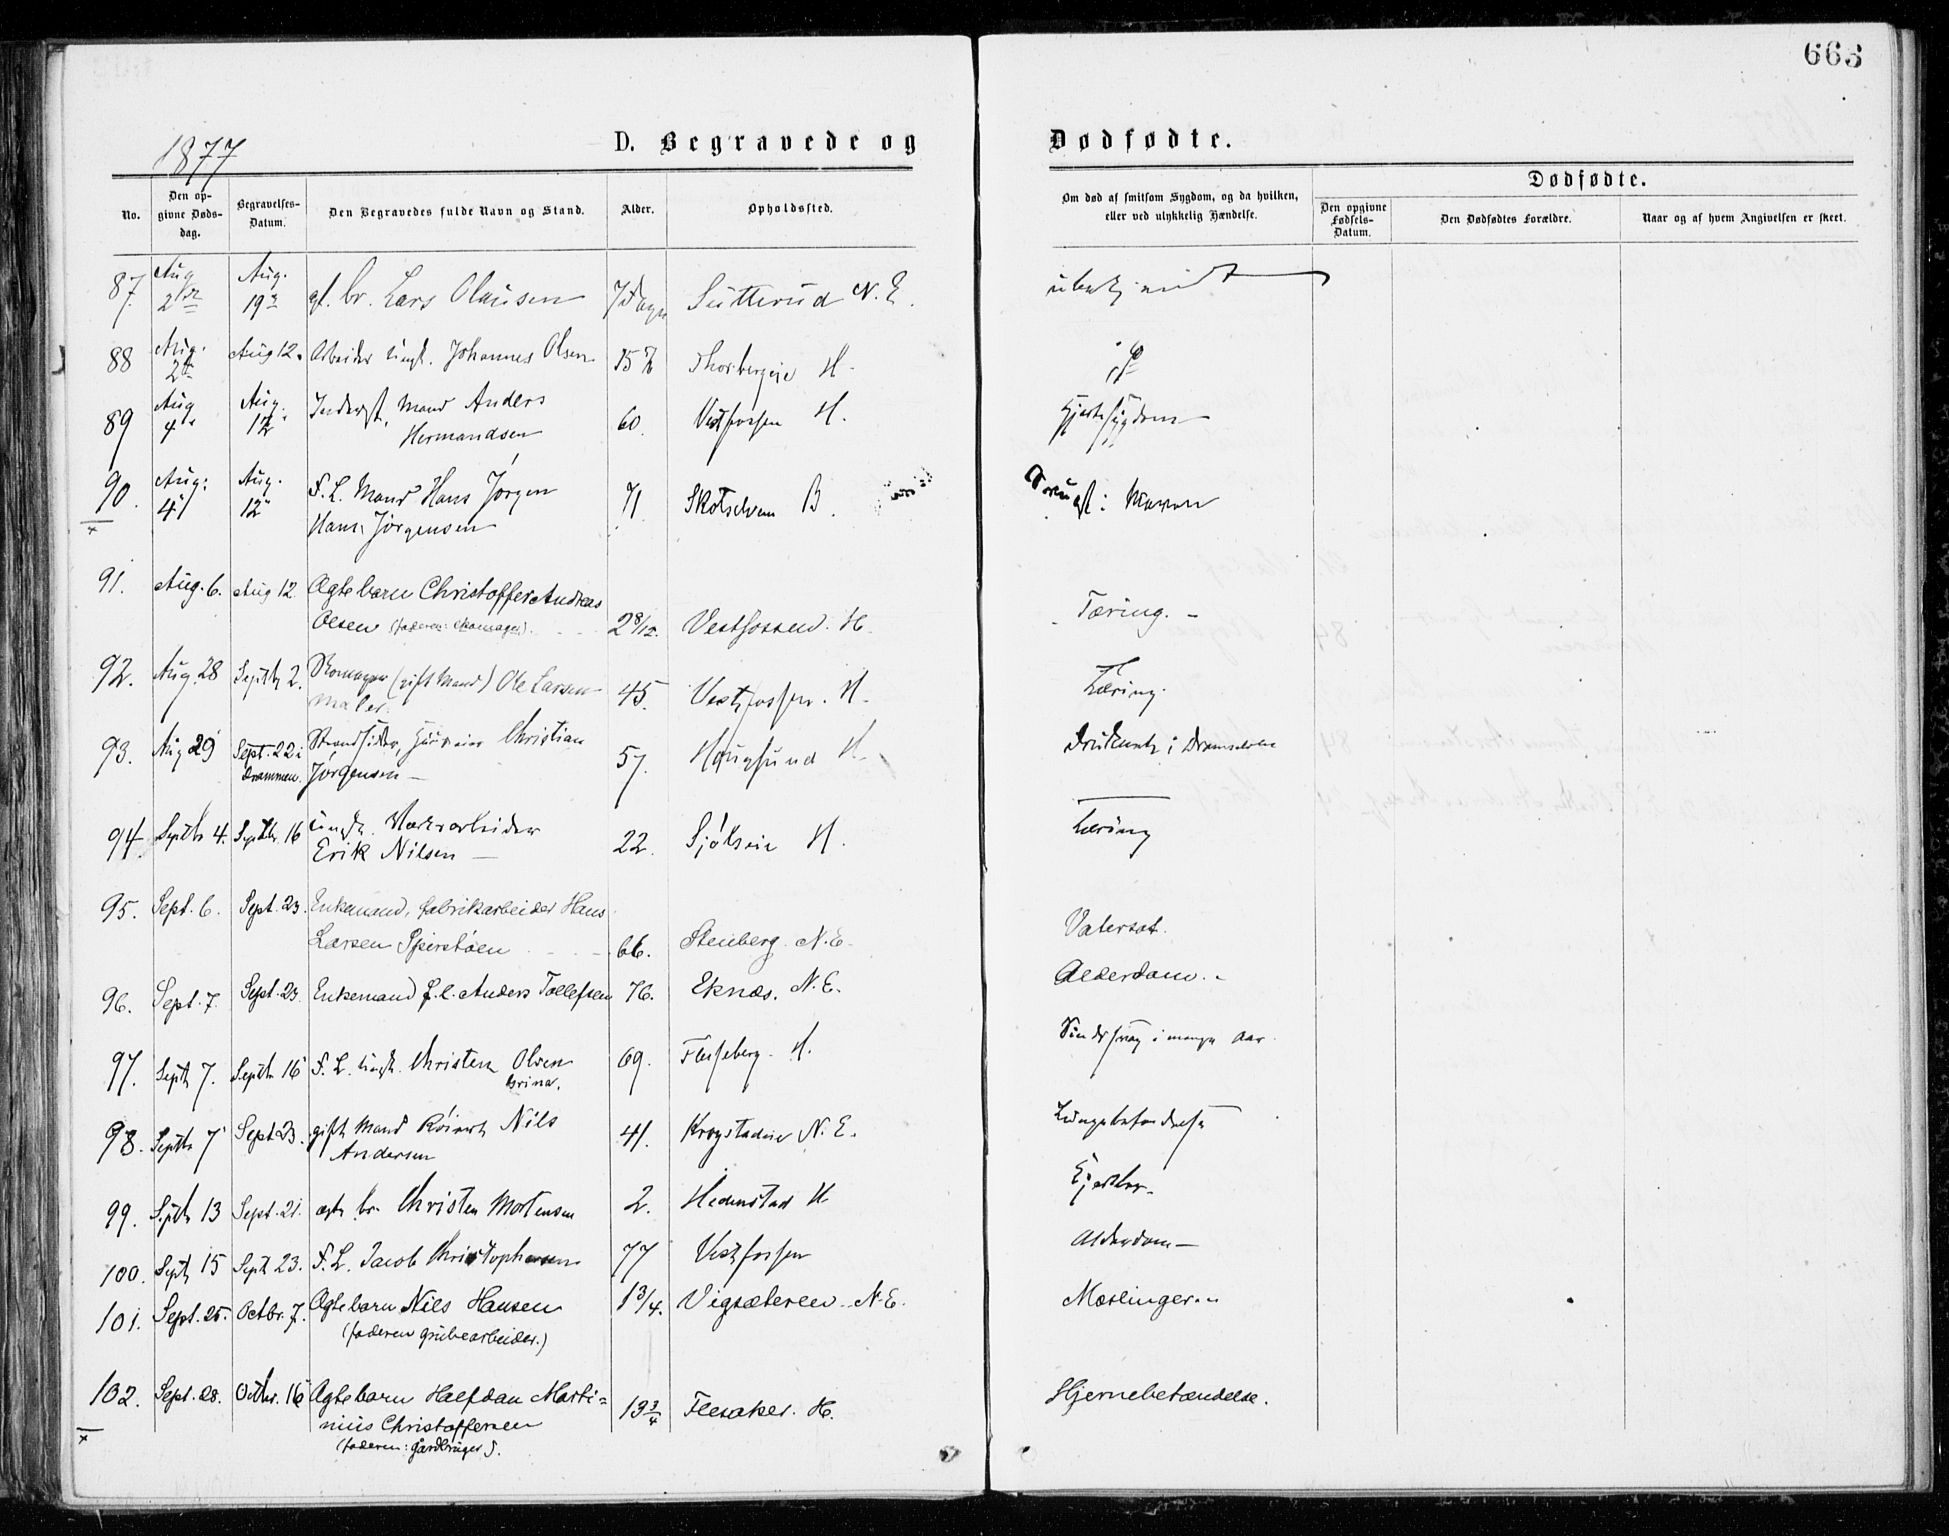 663
1877
D. Begravede og Dødfødte.
No.
Den opgivne Døds-dag.
Begravelses-Datum.
Den Begravedes fulde Navn og Stand.
Alder.
Opholdssted.
Om død af smitsom Sygdom, og da hvilken, eller ved ulykkelig Hændelse.
Dødfødte.
Den opgivne Fødsels-Datum.
Den Dødfødtes Forældre.
Naar og af hvem Angivelsen er skeet.
87. Aug 2 Aug. 19 br. Lars Olausen 7 Dage Sutterud N. E. ubekjendt
88 Aug. 2 Aug 12. Arbeider Johannes Olsen H.
89 Aug 4 Aug. 12 Inderst, Mand Anders
Hermandsen 60. Vestfossen H. Hjertesygdom
90. Aug: 4 Aug. 12 F. L. Mand Hans Jørgen
Hans. Jørgensen 71. Skotselven B.
91. Aug. 6. Aug 12. Ægte barn Christoffer Andreas
Olsen (faderen: skomager). 2 8/12. Vestfossen. H. Tæring.
92. Aug. 28 Septb 2. Skomager (gift Mand) Ole Larsen
Maler. 45. Vestfossen. H. Tæring.
93. Aug 29 Sept. 22 i Drammen. Strandsidder, Christian
Jørgensen 57. Hougsund H. Druknet i Dramselven
94. Septb 4. Septbr. 16 Værkarbeider
Erik Nilsen 22. H. Tæring
95. Sept. 6. Sept. 23. Enkemand, fabrikarbeider Hans
Larsen Spirstøen 66. Stenberg. N. E. Vatersot.
96. Sept. 7. Sept. 23. Enkemand f. l. Anders Tollefsen 76. Eknæs. N. E. Alderdom.
97. Septb 7. Septbr 16 F. L. Christen Olsen
69. Flesseberg. H. Sindssvag i mange Aar.
98. Septbr 7 Sept 23. gift Mand Nils
Andersen 41. Krogstadeie N. E. Lungebetændelse
99. Septb 13 Sept. 21. ægte br. Christen Mortensen 2. Hedenstad H
100. Septb 15 Sept 23. F. L. Jacob Christophersen 77 Vestfossen Alderdom
101. Sept. 25. Octbr. 7. Ægte barn Nils Hansen
(faderen grubearbeider.) 1 3/4. Vigsæteren. N. E. Mæslinger.
102. Sept. 28. Octbr. 16 Ægte barn Halfdan Marti=
nius Christoffersen
(faderen: gårdbruger). 13 3/4 Flesaker. H. Hjernebetændelse.